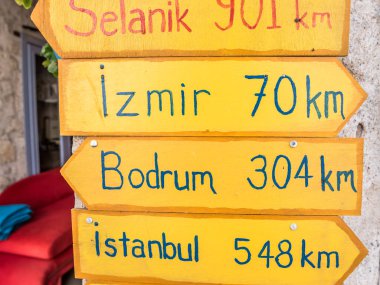 Selanik 901 km
İzmir 70 km
Bodrum 304 km
İstanbul 548 km